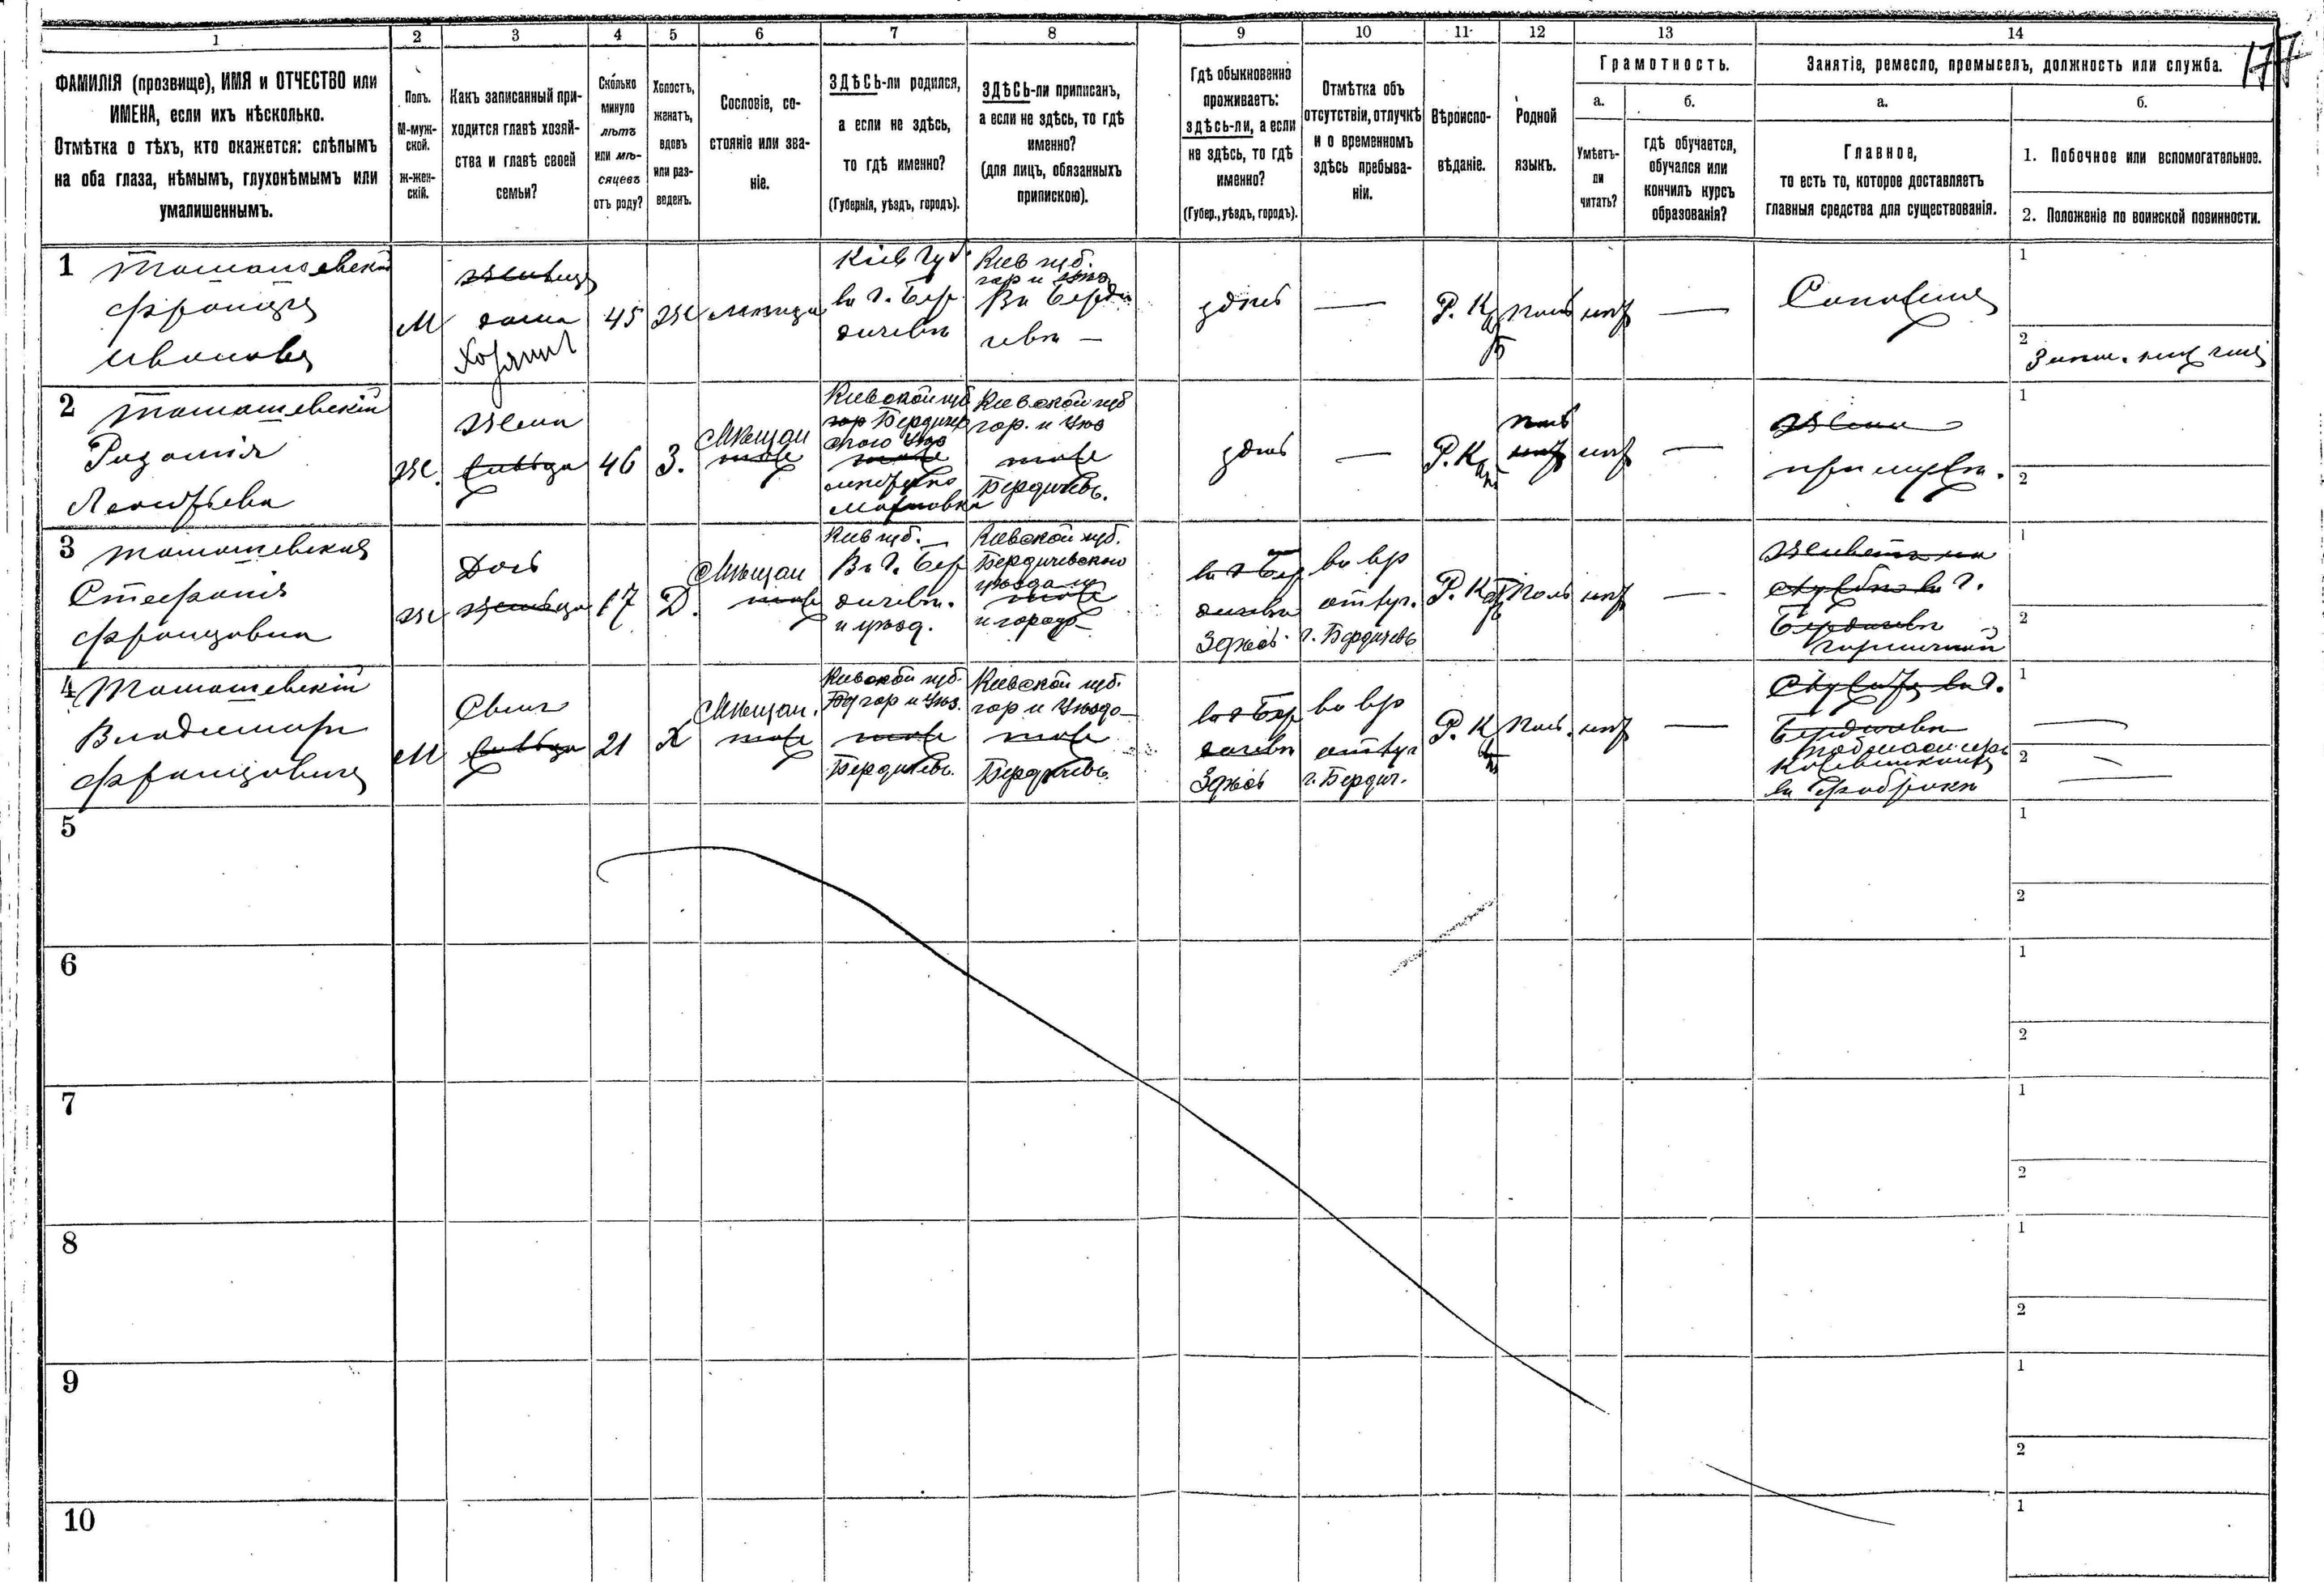 1 2 3 4 5 6 7 8 9 10 11 12 13 14
177
ФАМИЛІЯ (прозвище), ИМЯ и ОТЧЕСТВО или
ИМЕНА, если ихъ нѣсколько.
Отмѣтка о тѣхъ, кто окажется: слѣпымъ
на оба глаза, нѣмымъ, глухонѣмымъ или
умалишеннымъ.
Полъ.
М-муж-
ской.
Ж-жен-
скій.
Какъ записанный при-
ходится главѣ хозяй-
ства и главѣ своей
семьи?
Сколько
минуло
лѣтъ
или мѣ-
сяцевъ
отъ роду?
Холостъ,
женатъ,
вдовъ
или раз-
веденъ.
Сословіе, со-
стояніе или зва-
ніе.
ЗДѢСЬ-ли родился,
а если не здѣсь,
то гдѣ именно?
(Губернія, уѣздъ, городъ).
ЗДѢСЬ-ли приписанъ,
а если не здѣсь, то гдѣ
именно?
(для лицъ, обязанныхъ
припискою).
Гдѣ обыкновенно
проживаетъ:
здѣсь-ли, а если
не здѣсь, то гдѣ
именно?
(Губер., уѣздъ, городъ).
Отмѣтка объ
отсутствіи, отлучкѣ
и о временномъ
здѣсь пребыва-
ніи.
Вѣроиспо-
вѣданіе.
Родной
языкъ.
Грамотность.
а.
Умѣетъ-
ли
читать?
б.
гдѣ обучается,
обучался или
кончилъ курсъ
образованія?
Занятіе, ремесло, промыселъ, должность или служба.
а.
Главное,
то есть то, которое доставляетъ
главныя средства для существованія.
б.
1. Побочное или вспомогательное.
2. Положеніе по воинской повинности.
1 Томашевскій
Францъ
Ивановъ
М
Хозяинъ
45
Ж
Кіев Губ.
въ г. Бер
дичевѣ
Киев губ.
гор и уѣз
Въ Берди
чевѣ —
здѣсь
—
Р. К
поль
нѣтъ
—
1
2
2 Томашевскій
Розалія
Леонтьева
Ж.
Жена
46
З.
Мѣщан
Киевской губ
гор Бердичев
ского уѣз
Киевской губ
гор. и уѣз
тоже
Бердичевъ.
здѣсь
—
Р. К
поль
нѣтъ
—
Жена
при мужѣ.
1
2
3 Томашевская
Стефанія
Францовна
Ж
Дочь
17
Д.
Мѣщан
тоже
Киев губ.
Въ г. Бер
дичевѣ.
и уѣзд.
Киевской губ.
Бердичевскаго
уѣзда и
тоже
и города
въ г Бер
дичевѣ
Здѣсь
во вр
отлуч.
г. Бердичевъ
Р. К
поль
нѣтъ
—
Бердичевѣ
горничной
1
2
4 Томашевскій
Владимиръ
Францовичъ
М
Сынъ
21
Х
Мѣщан.
тоже
Киевской губ.
гор и уѣз.
тоже
Бердичевъ.
Киевской губ.
гор и уѣзда
тоже
Бердичевъ.
въ г Бер
дичевѣ
Здѣсь
во вр
отлуч
г. Бердич.
Р. К
поль.
нѣтъ
—
Бердичевѣ
въ фабрикѣ
1
2
5
1
2
6
1
2
7
1
2
8
1
2
9
1
2
10
1